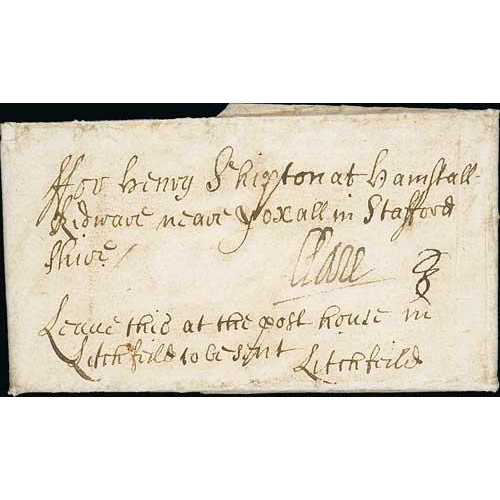 ffor Henry Shipton at Hamstall-
Ridware neare Yoxall in Stafford
shire
Clare
Leave this at the post house in
Litchfeild to be sent Litchfeild